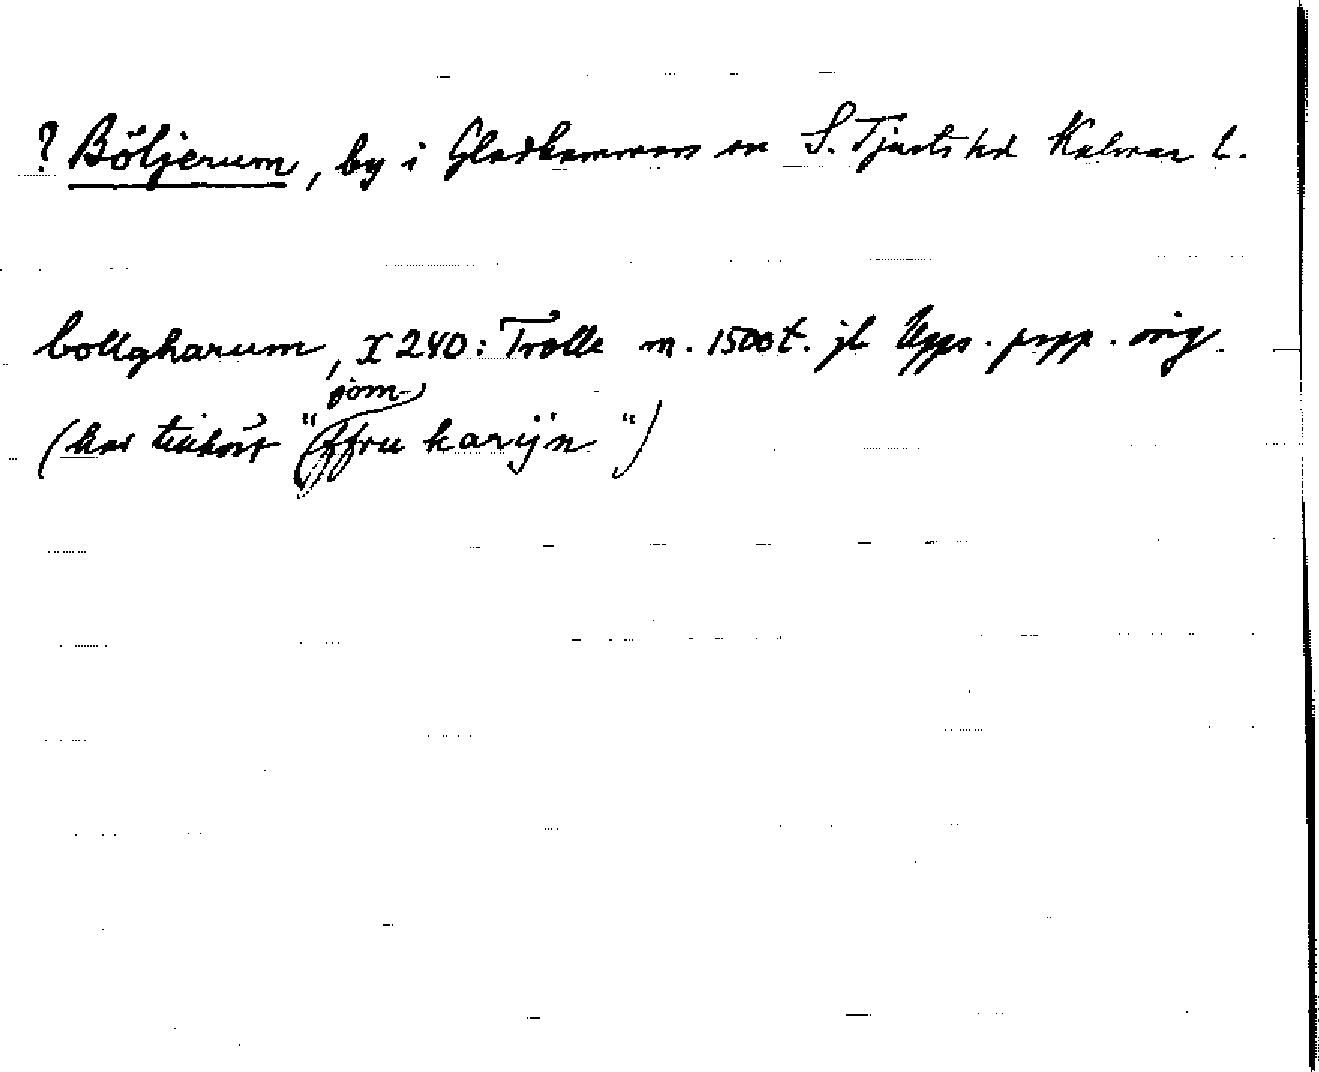 ? Böljerum, by i Gladhammars sn S. Tjusts hd Kalmar l.
bollgharum, X 240: Trolle m. 1500t. jb Upps. papp. orig.
jom
(har tillhört "ffru karijn")